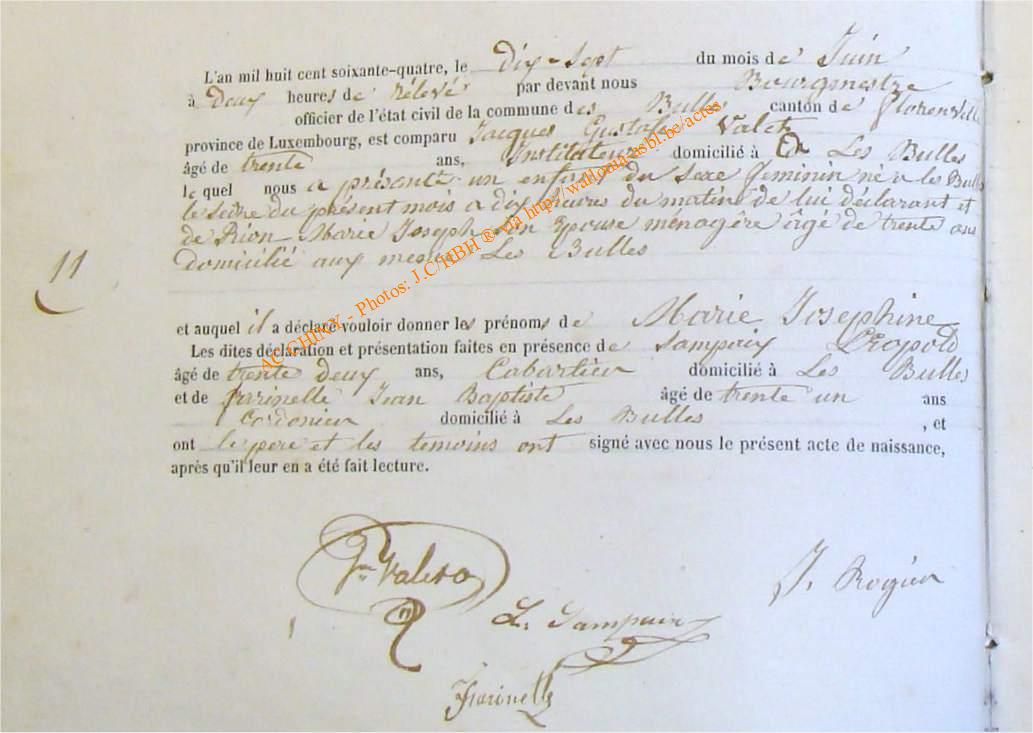 L'an mil huit cent soixante-quatre, le dix-Sept du mois de Juin
à Deux heures de rélevé par devant nous Bourgmestre
officier de l'état civil de la commune des Bulles canton de florenville
province de Luxembourg, est comparu Jacques Gustafe
âgé de trente ans, Instituteur domicilié à Les Bulles
le quel nous a présenté un enfant du Sexe feminin né a les Bulles
le Seize du présent mois a dix heures du matin de lui déclarant et
de Pion Marie Joseph Son Epouse ménagère âgé de trente ans
domicilié aux mesmes Les Bulles
11
et auquel il a déclaré vouloir donner les prénoms de Marie Josephine
Les dites déclaration et présentation faites en présence de Sampaix Léopold
âgé de trente deux ans, Cabartier domicilié à Les Bulles
et de farinelle Jean Baptiste âgé de trente un ans
Cordonier domicilié à Les Bulles , et
ont le pere et les temoins ont signé avec nous le présent acte de naissance,
après qu'il leur en a été fait lecture.
J. Rogier
L. Sampaix
Farinelle
AC CHINY - Photos: J.C/HBH ® via http://wallonia-asbl.be/actes